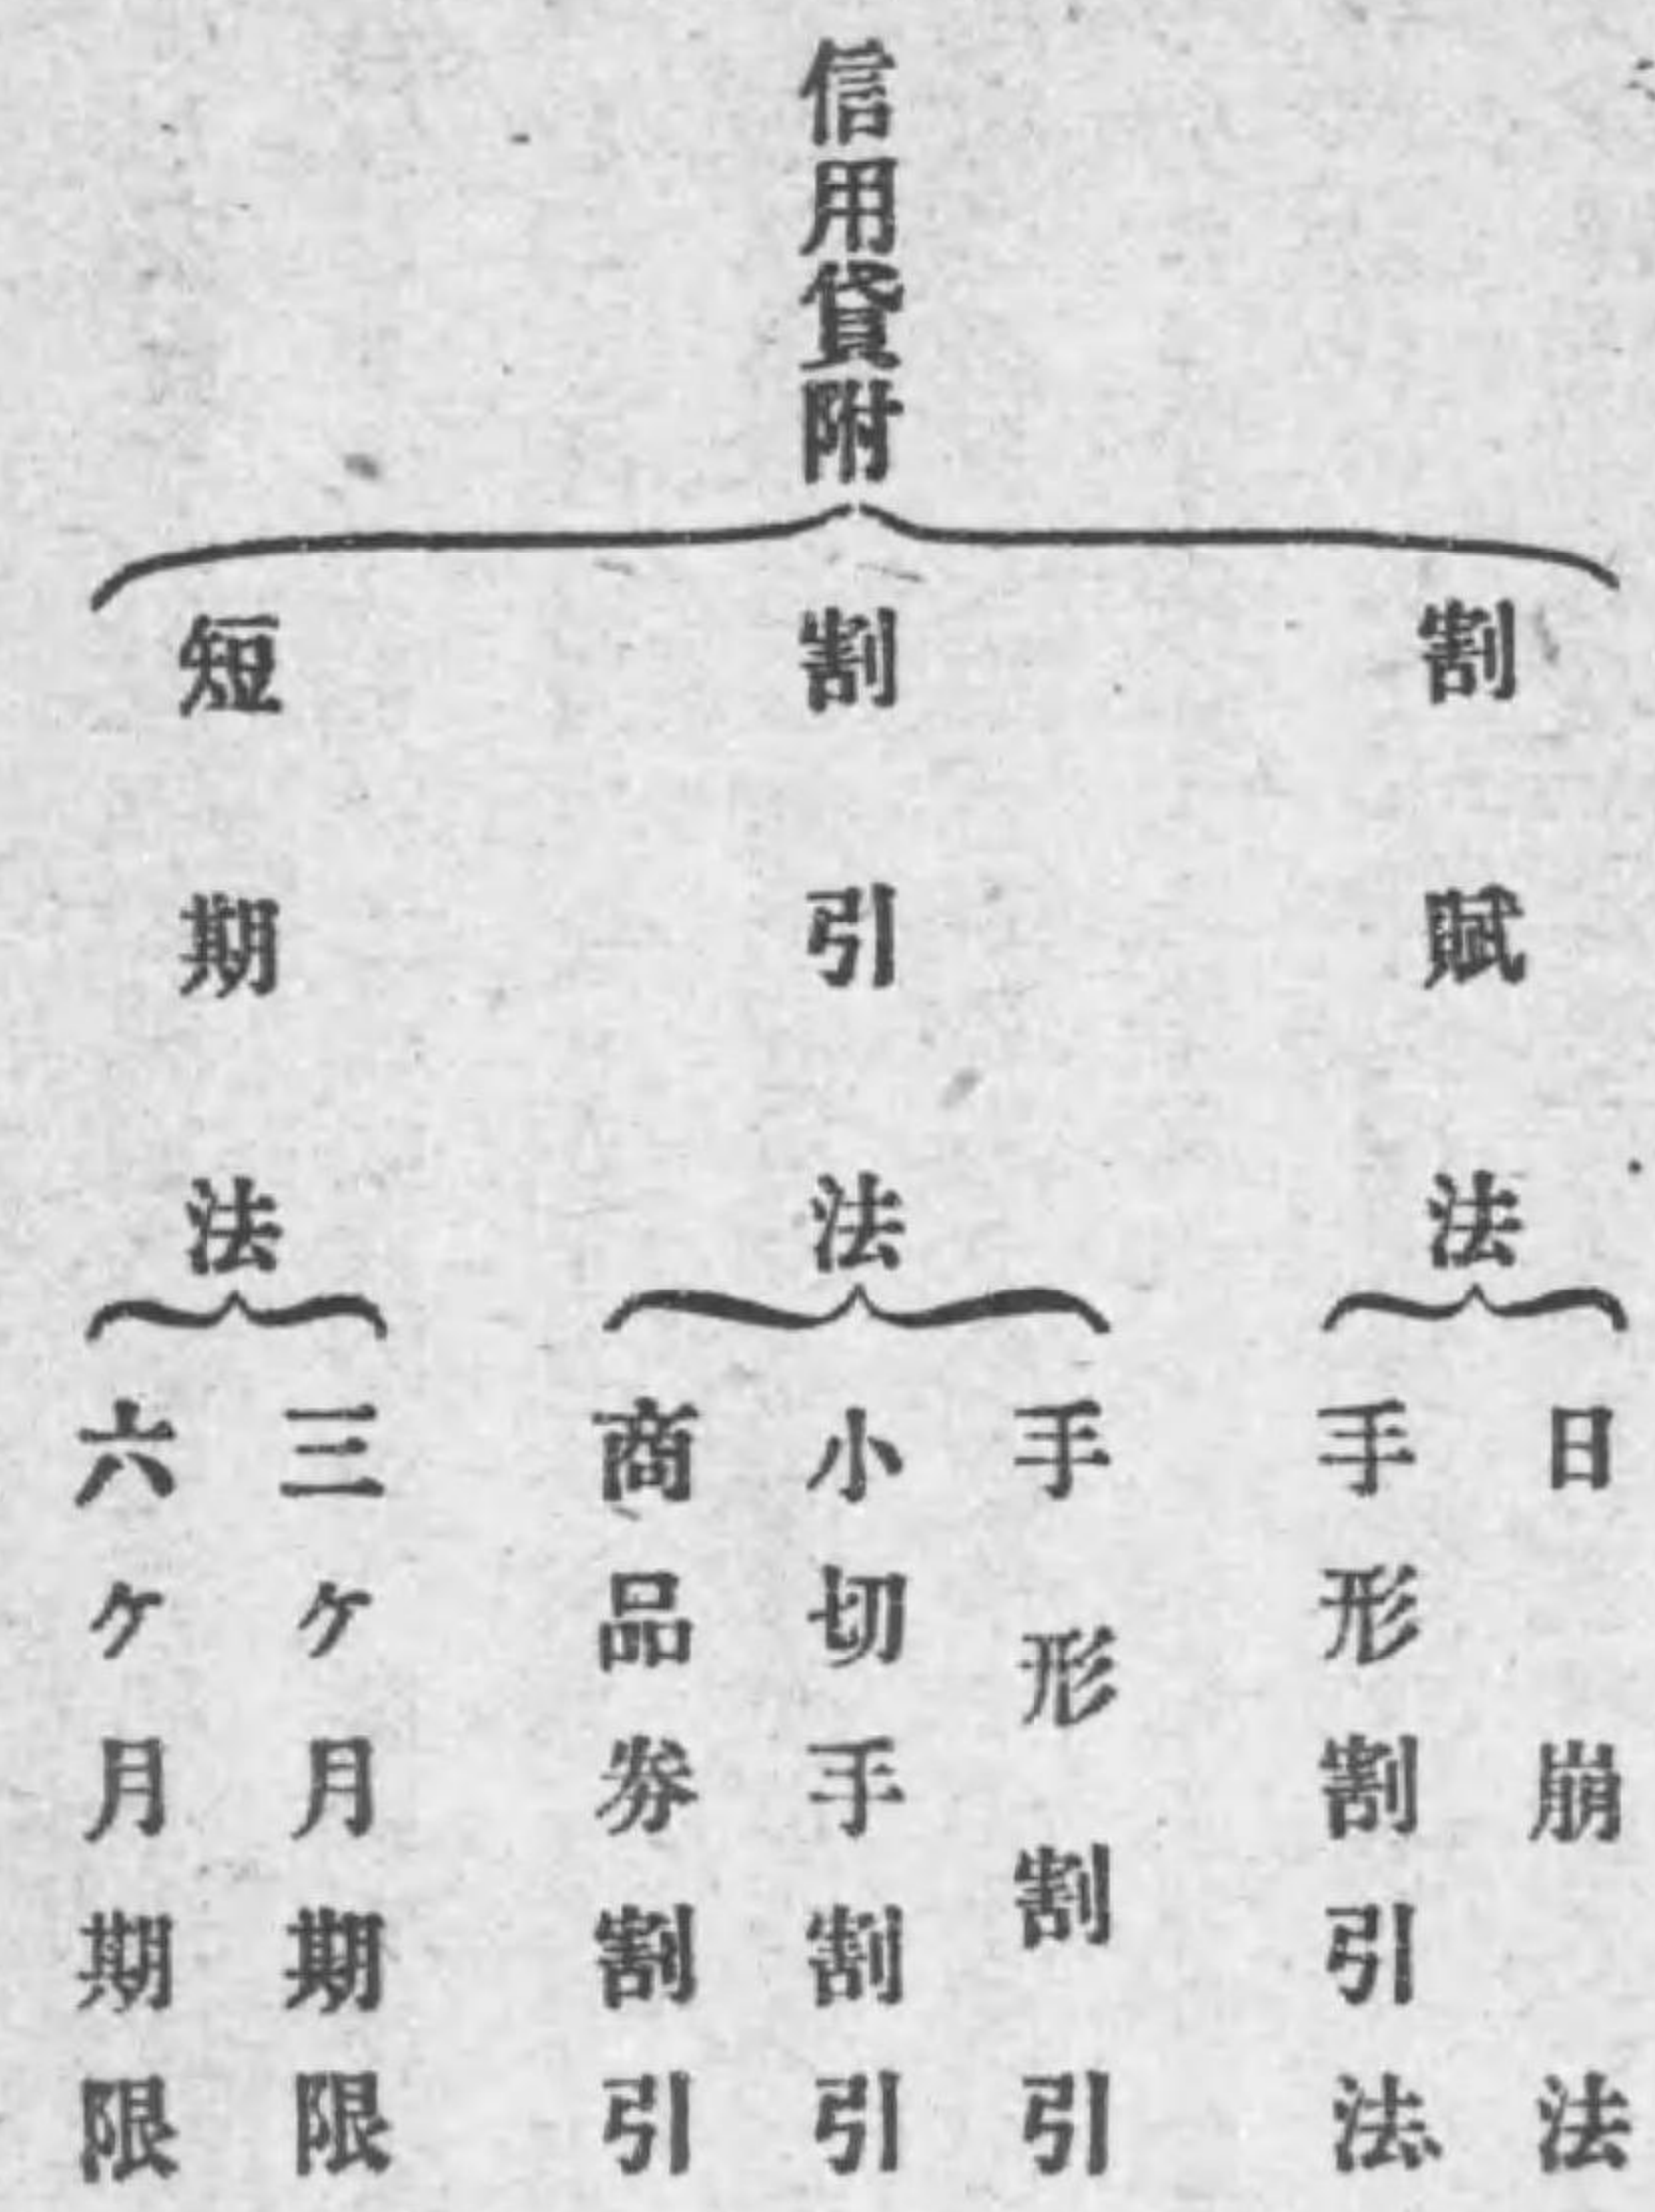 信用貸附
割賦法
日崩法
手形割引法
割引法
手形割引
小切手割引
商品劵割引
短期法
三ケ月期限
六ケ月期限